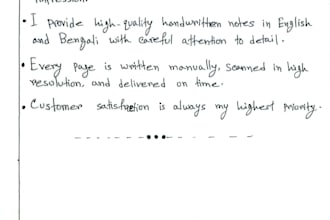 • I provide high-quality handwritten notes in English
and Bengali with careful attention to detail.
• Every page is written manually, scanned in high
resolution, and delivered on time.
• Customer satisfaction is always my highest priority.